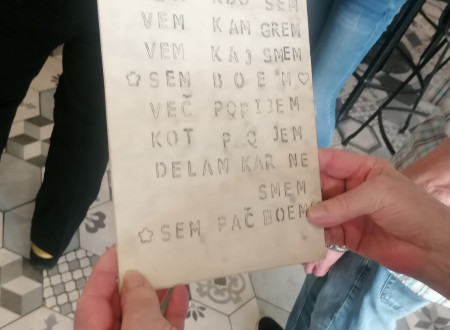 SEM
VEM KAM GREM
VEM KAJ SMEM
SEM BOEM
VEČ POPIJEM
KOT POJEM
DELAM KAR NE
SMEM
SEM PAČ BOEM